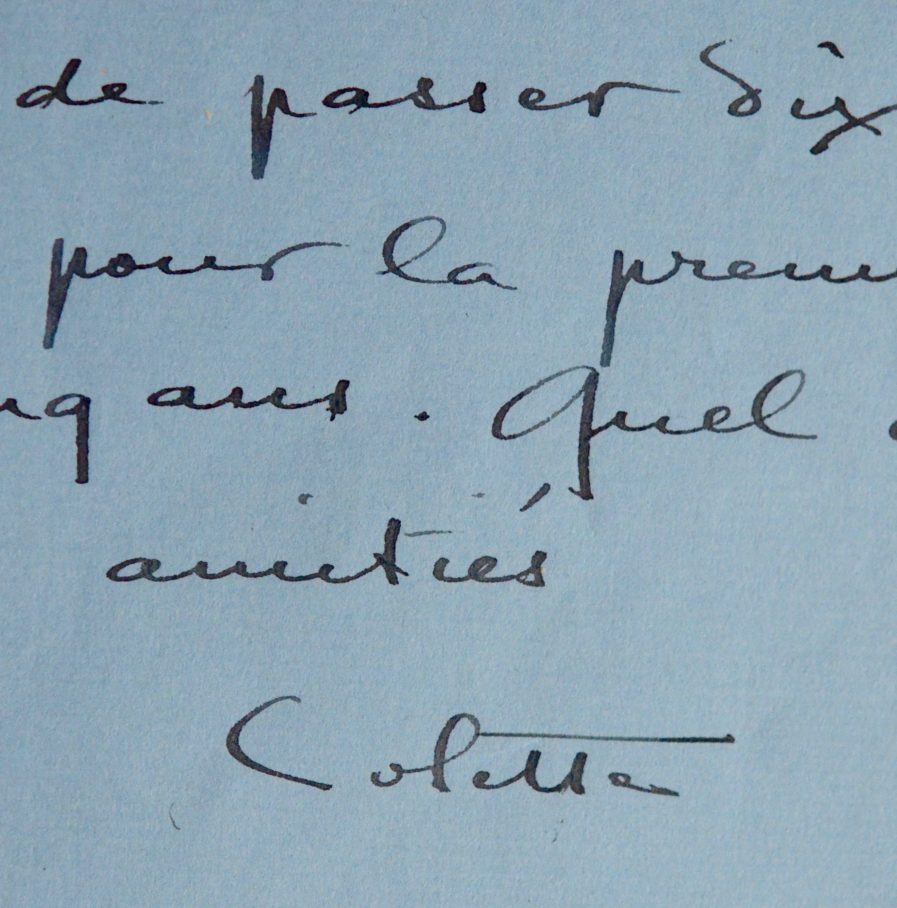 de passer Six
pour la prem
nq ans. Quel
amitiés
Colette